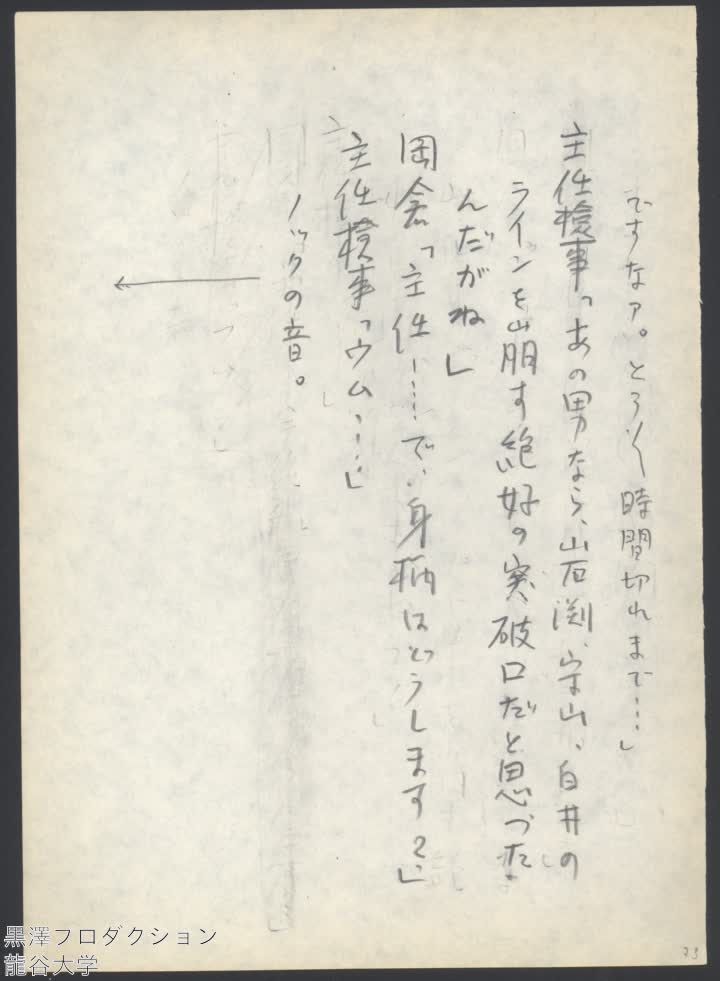 ですなァ。とう〱時間切れまで……」
主任検事「あの男なら、岩渕、守山、白井の
ラインを崩す絶好の突破口だと思つた
んだがね」
岡倉「主任……で、身柄はどうします?」
主任検事「ウム……」
ノックの音。
黒澤プロダクション
龍谷大学
73